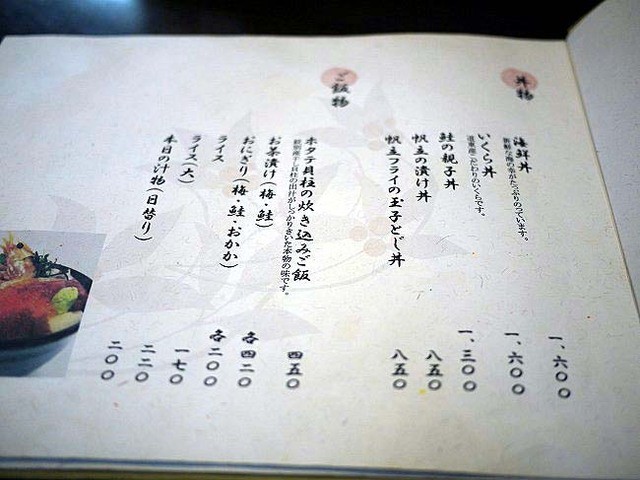 丼物
海鮮丼
新鮮な海の幸がたっぷりのっています。
一、六〇〇
いくら丼
道東産こだわりのいくらです。
一、六〇〇
鮭の親子丼
一、三〇〇
帆立の漬け丼
八五〇
帆立フライの玉子とじ丼
八五〇
ご飯物
ホタテ貝柱の炊き込みご飯
紋別産干し貝柱の出汁がしっかりきいた本物の味です。
四五〇
お茶漬け(梅・鮭)
各四二〇
おにぎり(梅・鮭・おかか)
各二〇〇
ライス
一七〇
ライス(大)
二二〇
本日の汁物(日替り)
二〇〇